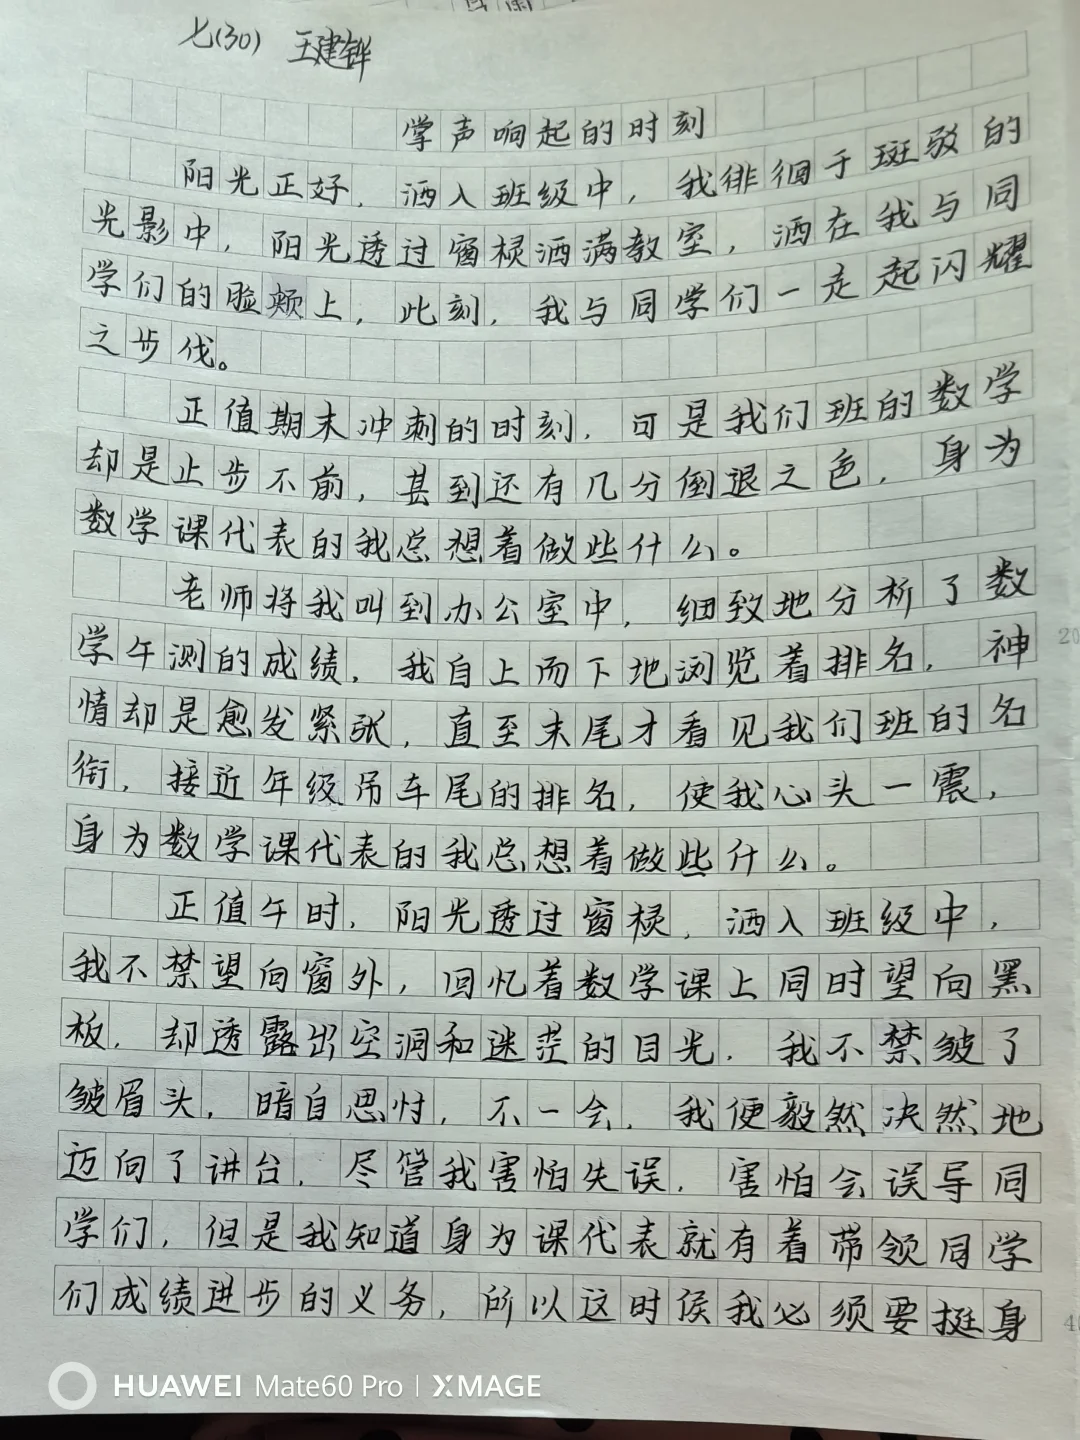 七(30) 王建铧
掌声响起的时刻
阳光正好，洒入班级中，我徘徊于斑驳的
光影中，阳光透过窗棂洒满教室，洒在我与同
学们的脸颊上，此刻，我与同学们一走起闪耀
之步伐。
正值期末冲刺的时刻，可是我们班的数学
却是止步不前，甚到还有几分倒退之色，身为
数学课代表的我总想着做些什么。
老师将我叫到办公室中，细致地分析了数
学午测的成绩，我自上而下地浏览着排名，神
情却是愈发紧张，直至末尾才看见我们班的名
衔，接近年级吊车尾的排名，使我心头一震，
身为数学课代表的我总想着做些什么。
正值午时，阳光透过窗棂，洒入班级中，
我不禁望向窗外，回忆着数学课上同时望向黑
板，却透露出空洞和迷茫的目光，我不禁皱了
皱眉头，暗自思忖，不一会，我便毅然决然地
迈向了讲台，尽管我害怕失误，害怕会误导同
学们，但是我知道身为课代表就有着带领同学
们成绩进步的义务，所以这时侯我必须要挺身
20
HUAWEI Mate60 Pro | XMAGE